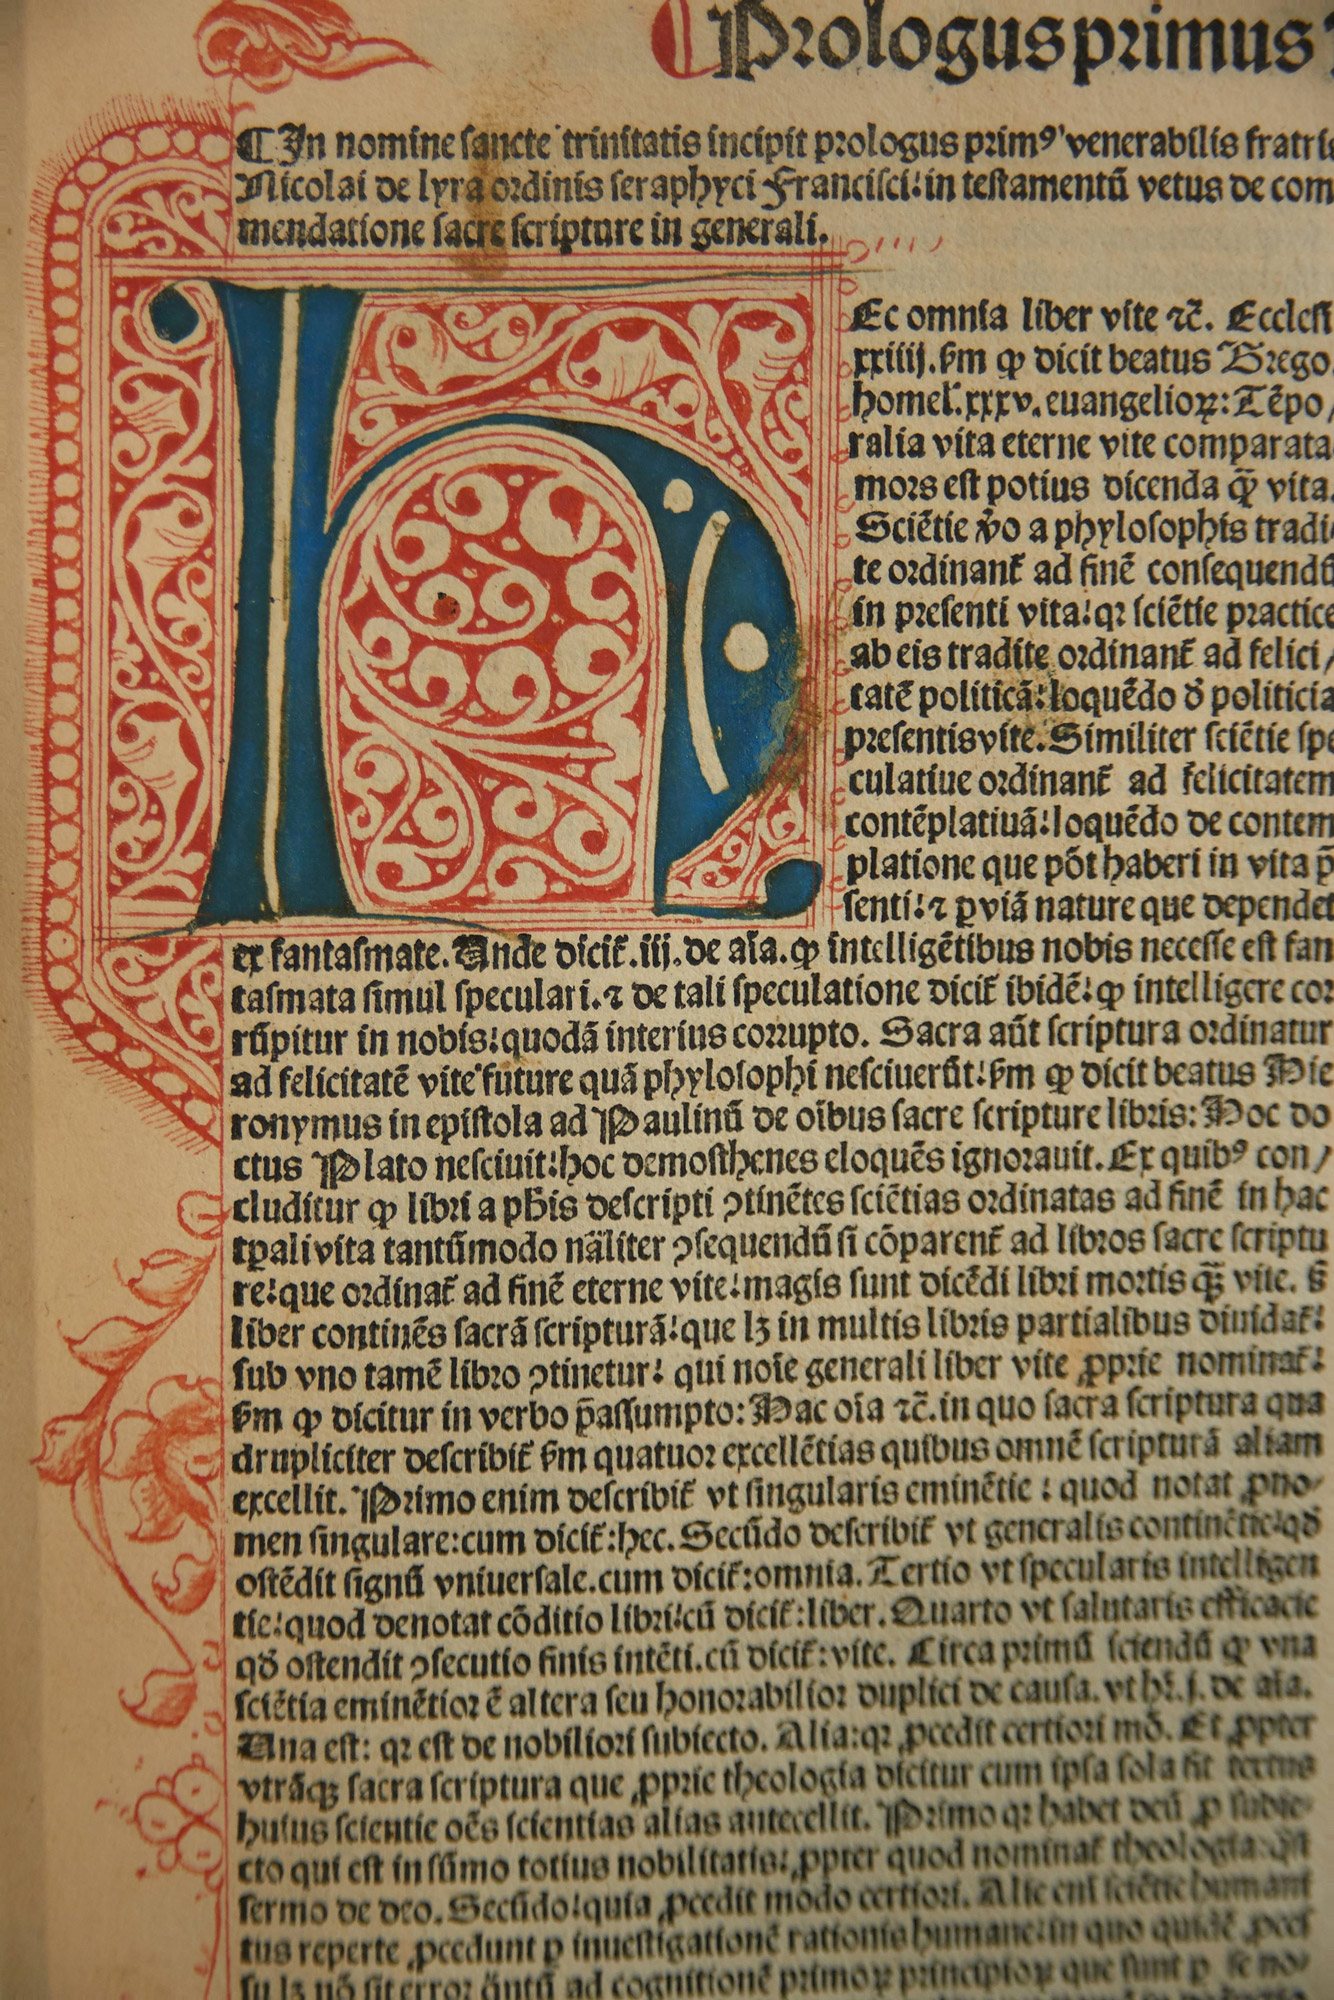 Prologus primus
¶ In nomine sancte trinitatis incipit prologus primꝰ venerabilis fratris
Nicolai de lyra ordinis seraphyci Francisci: in testamentū vetus de com
mendatione sacre scripture in generali.
h
Ec omnia liber vite ⁊c̄. Eccłesi
xxiiij. ẜm ꝙ dicit beatus Grego.
homel̓. xxxv. euangelioꝝ: Tēpo/
ralia vita eterne vite comparata
mors est potius dicenda q̄ꝫ vita.
Sciētie ṽo a phylosophis tradi
te ordinant̄ ad finē consequendū
in presenti vita: qꝛ sciētie practice
ab eis tradite ordinant̄ ad felici/
tatē politicā: loquēdo d̓ politicia
presentis vite. Similiter sciētie spe
culatiue ordinant̄ ad felicitatem
contēplatiuā: loquēdo de contem
platione que pōt haberi in vita p̄
senti: ⁊ ꝑ viā nature que dependet
ex fantasmate. Unde dicit̄. iij. de aīa. ꝙ intelligētibus nobis necesse est fan
tasmata simul speculari. ⁊ de tali speculatione dicit̄ ibidē: ꝙ intelligere cor
rūpitur in nobis: quodā interius corrupto. Sacra aūt scriptura ordinatur
ad felicitatē vite future quā phylosophi nesciuerūt: ẜm ꝙ dicit beatus Hie
ronymus in epistola ad Paulinū de oībus sacre scripture libris: Hoc do
ctus Plato nesciuit: hoc demosthenes eloquēs ignorauit. Ex quibꝰ con/
cluditur ꝙ libri a ph̄is descripti ꝯtinētes sciētias ordinatas ad finē in hac
tꝑali vita tantūmodo nāliter ꝯsequendū si cōparent̄ ad libros sacre scriptu
re: que ordinat̄ ad finē eterne vite: magis sunt dicēdi libri mortis q̄ꝫ vite. s̄
liber continēs sacrā scripturā: que lꝫ in multis libris partialibus diuidat̄:
sub vno tamē libro ꝯtinetur: qui noīe generali liber vite ꝓprie nominat̄:
ẜm ꝙ dicitur in verbo p̄assumpto: Hac oīa ⁊c̄. in quo sacra scriptura qua
drupliciter describit̄ ẜm quatuor excellētias quibus omnē scripturā aliam
excellit. Primo enim describit̄ vt singularis eminētie: quod notat ꝓno
men singulare: cum dicit̄: hec. Secūdo describit̄ vt generalis continētie: qd̄
ostēdit signū vniuersale. cum dicit̄: omnia. Tertio vt specularis intelligen
tie: quod denotat cōditio libri: cū dicit̄: liber. Quarto vt salutaris efficacie
qd̄ ostendit ꝯsecutio finis intēti. cū dicit̄: vite. Circa primū sciendū ꝙ vna
sciētia eminētior ē altera seu honorabilior duplici de causa. vt hr̄. j. de aīa.
Una est: qꝛ est de nobiliori subiecto. Alia: qꝛ ꝓcedit certiori mō. Et ꝓpter
vtrāqꝫ sacra scriptura que ꝓprie theologia dicitur cum ipsa sola sit
huius scientie oēs scientias alias antecellit. Primo qꝛ habet deū ꝓ subie
cto qui est in sūmo totius nobilitatis: ꝓpter quod nominat̄ theologia
sermo de deo. Secūdo: quia ꝓcedit modo certiori. Alie eni sciētie humani
tus reperte ꝓcedunt ꝑ inuestigationē rationis humane: in quo quidē
su lꝫ nō sit error ad cognitionē primoꝝ principioꝝ que sunt ꝑ se no